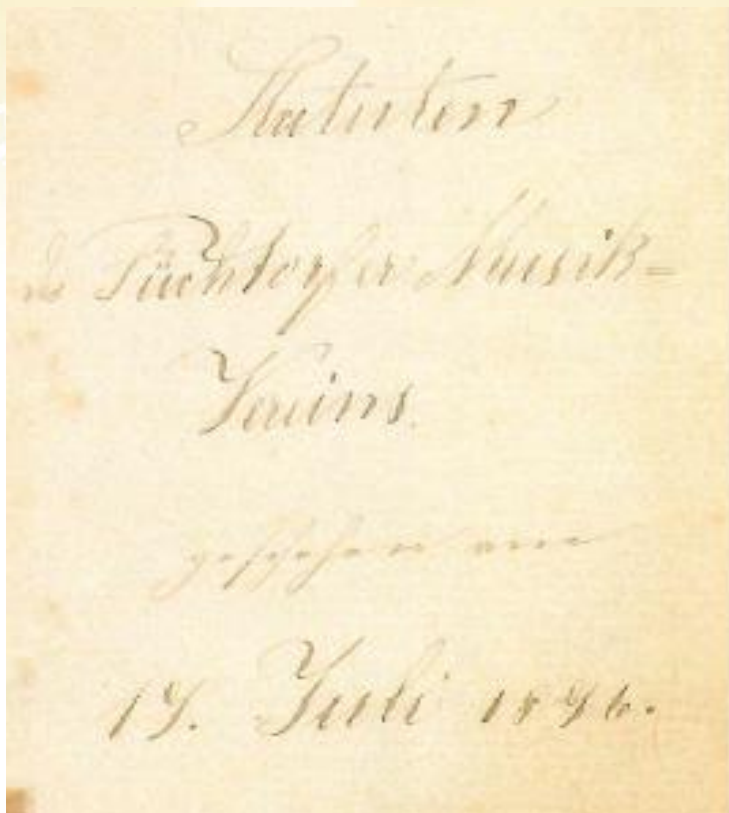 Statuten
des Füchtorfer Musik=
Vereins.
geschehen am
19. Juli 1896.